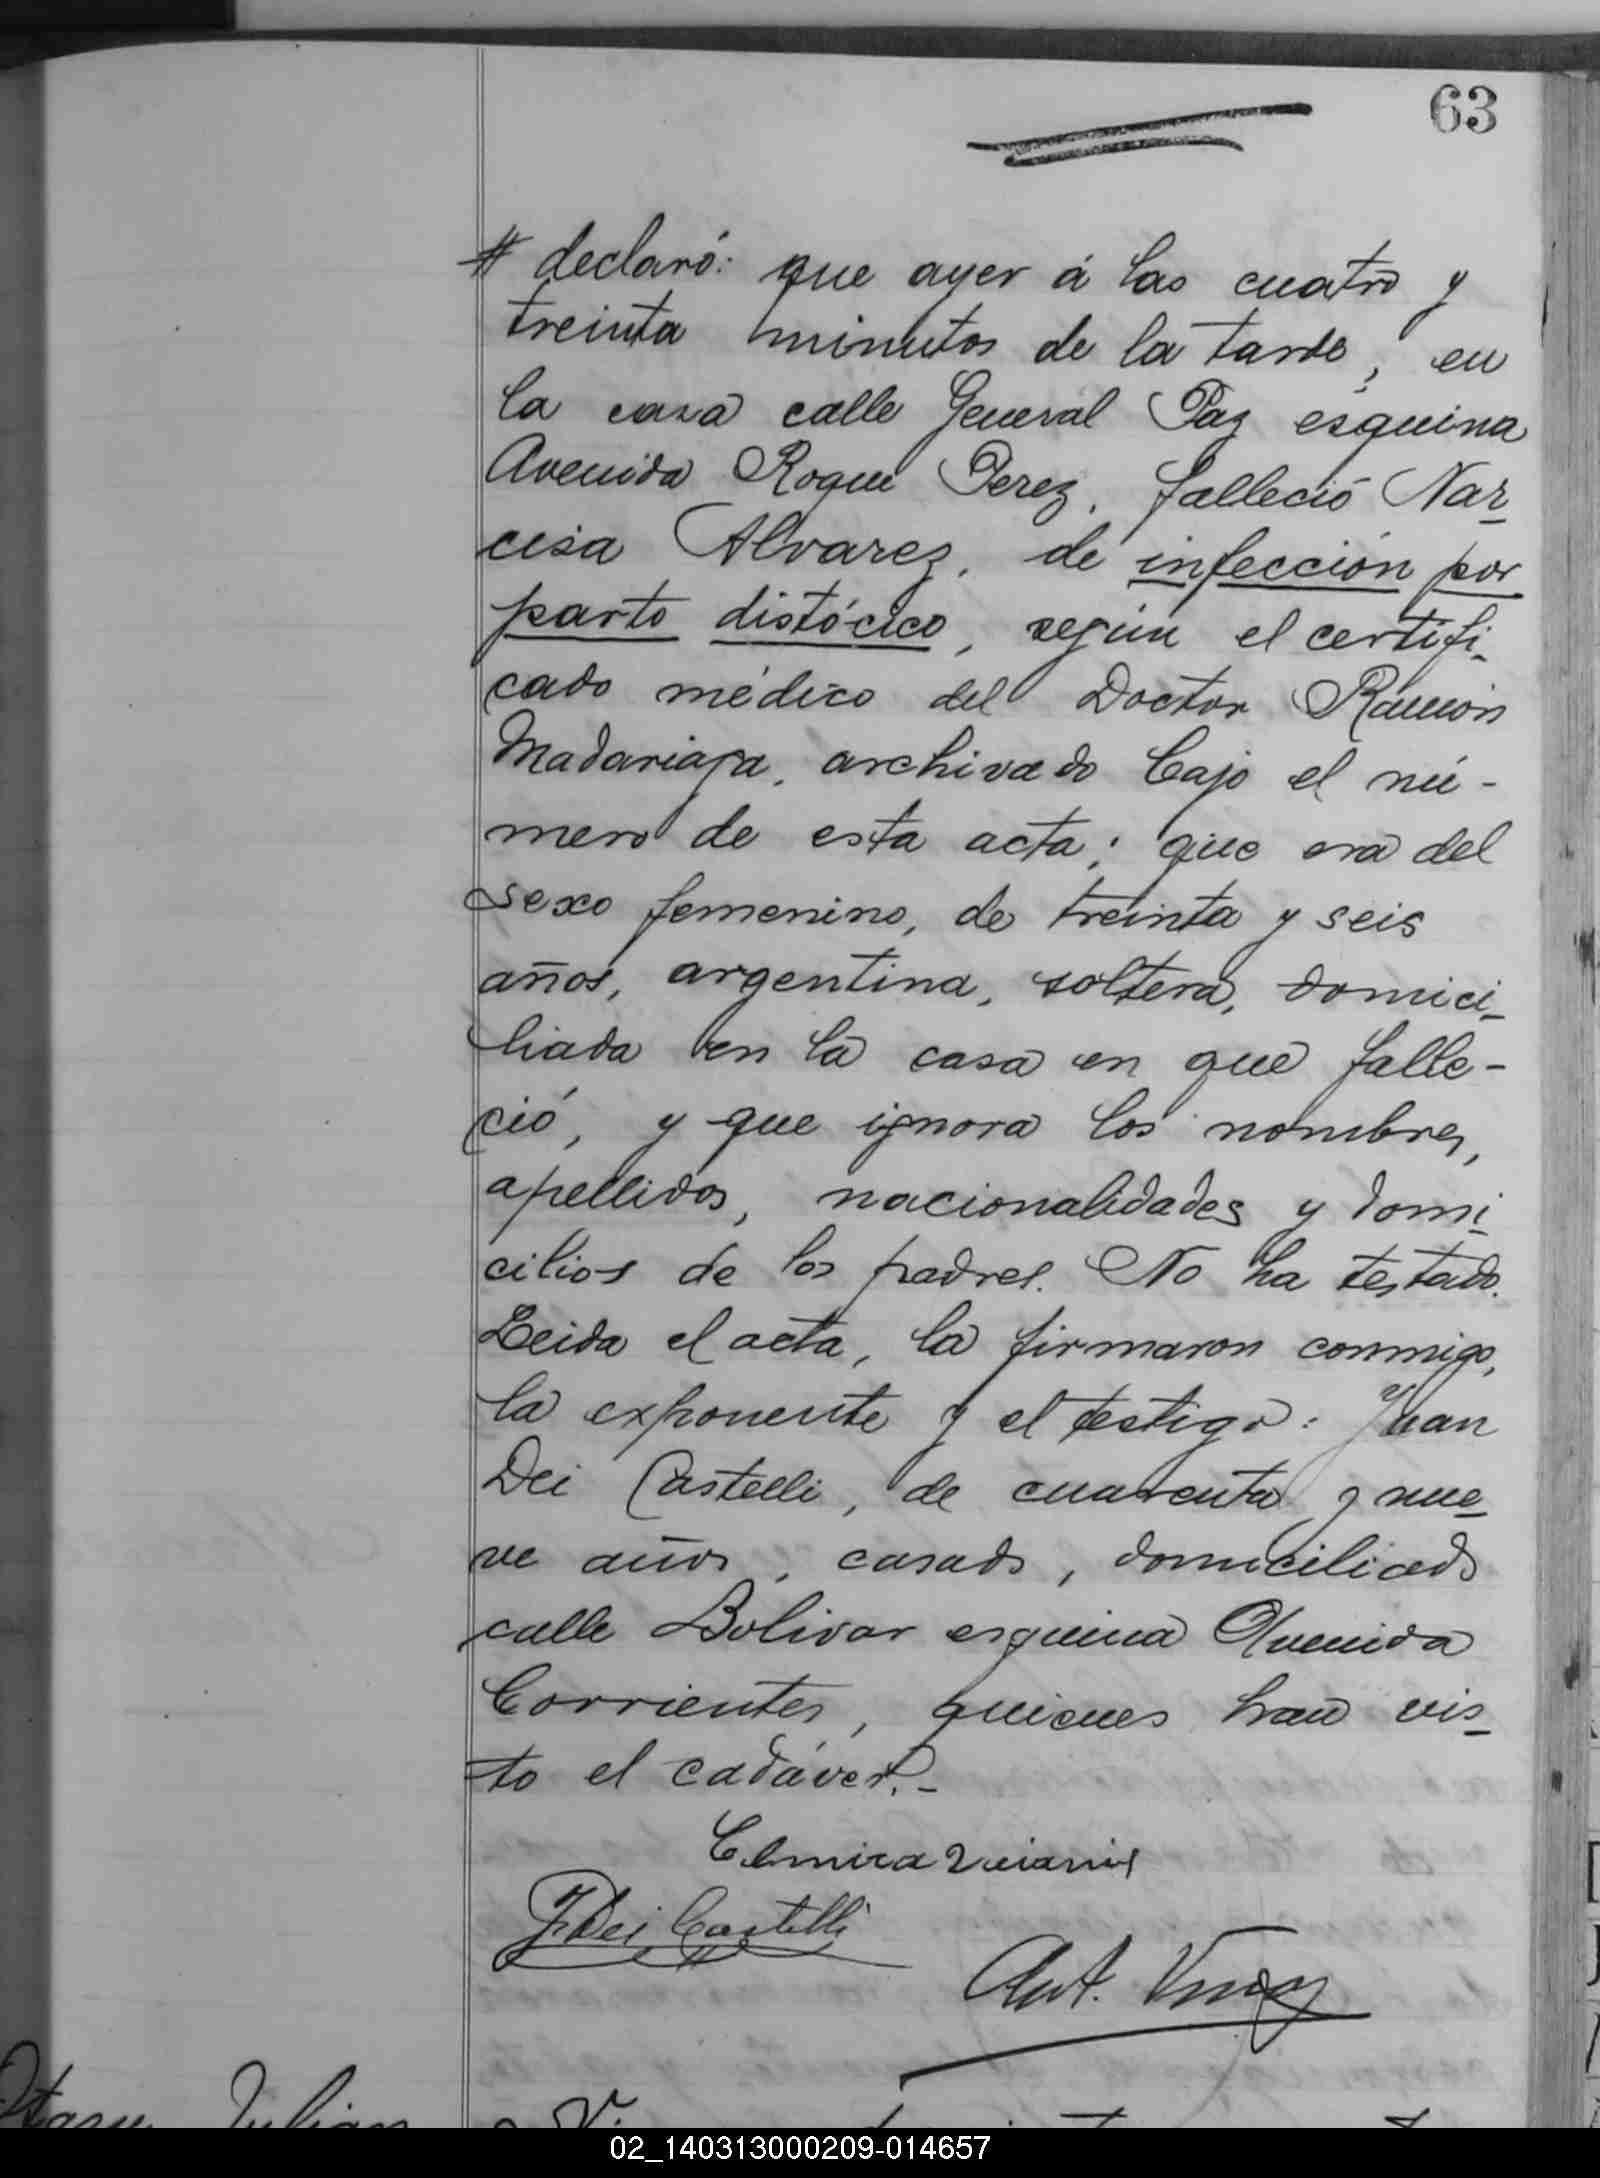 63
# declaró: que ayer á las cuatro y
treinta minutos de la tarde, en
la casa calle General Paz esquina
Avenida Roque Perez, falleció Nar-
cisa Alvarez, de infección por
parto distócico, según el certifi-
cado médico del Doctor Ramón
Madariaga, archivado bajo el nú-
mero de esta acta; que era del
sexo femenino, de treinta y seis
años, argentina, soltera, domici-
liada en la casa en que falle-
ció, y que ignora los nombres,
apellidos, nacionalidades y domi-
cilios de los padres. No ha testado.
Leida el acta, la firmaron conmigo,
la exponente y el testigo: Juan
Dei Castelli, de cuarenta y nue-
ve años, casado, domiciliado
calle Bolivar esquina Avenida
Corrientes, quienes han vis-
to el cadáver.-
Elmira
J Dei Castelli
Ant.
Julian
02_140313000209-014657